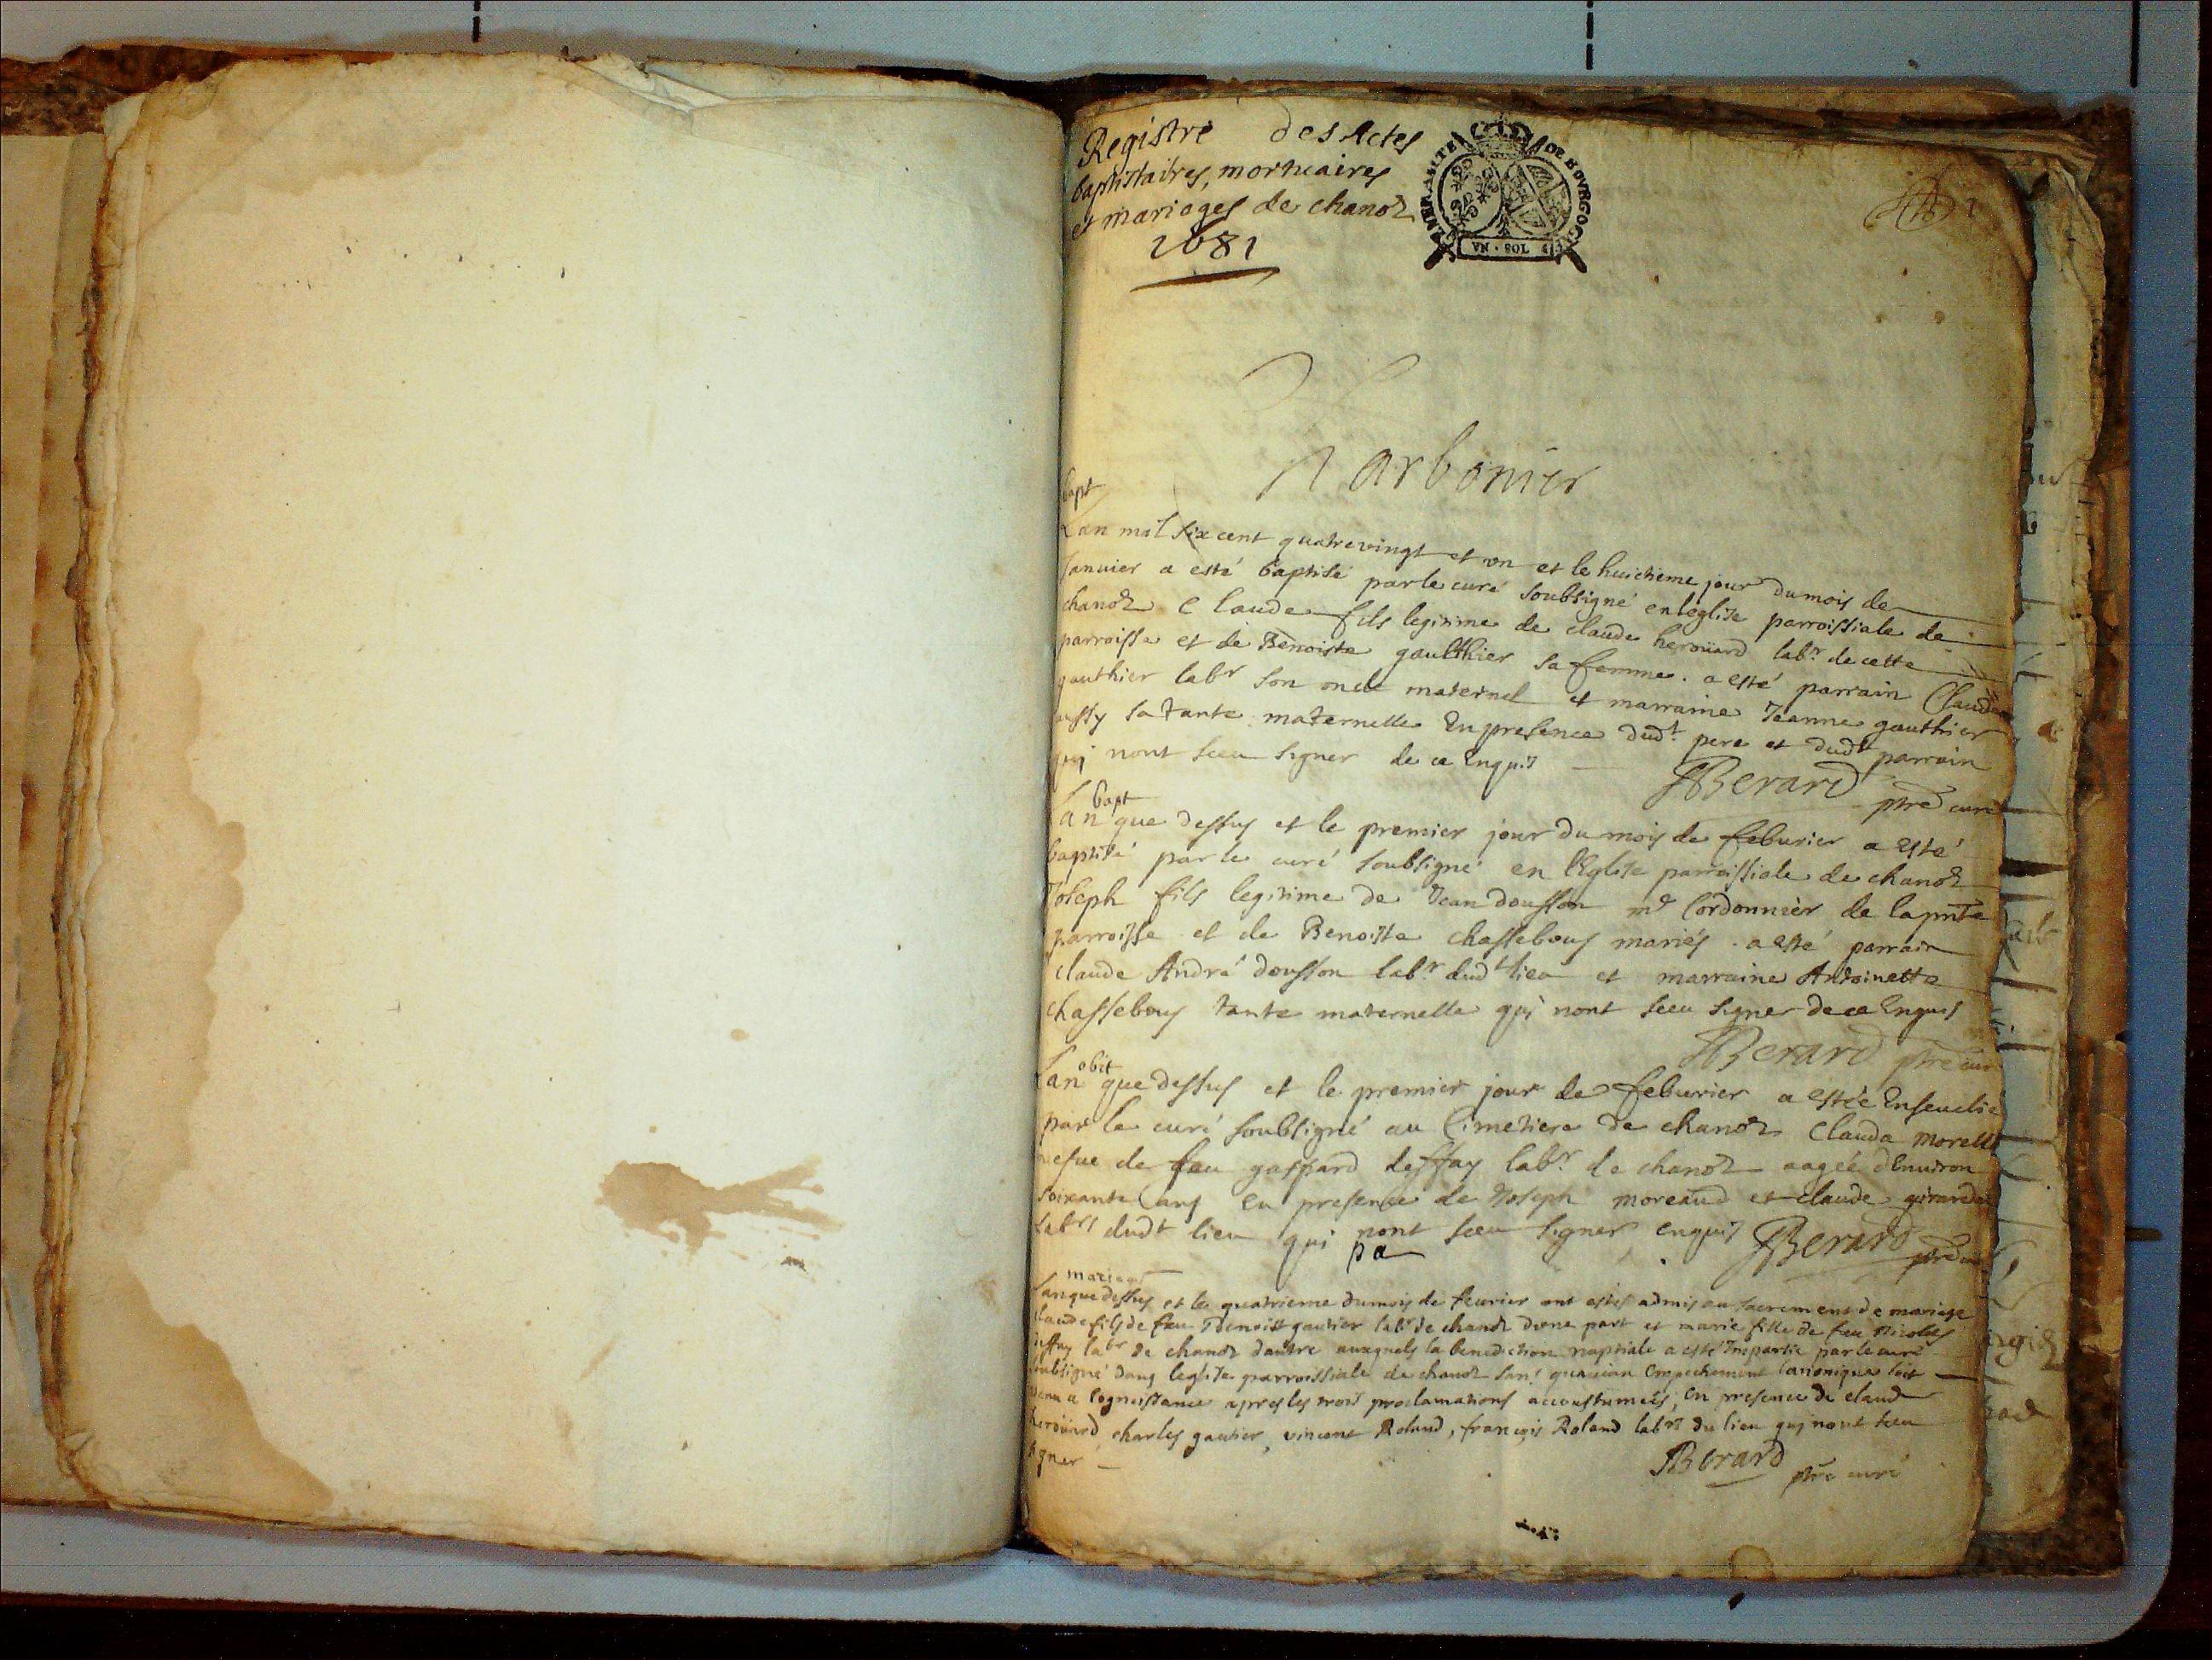 Registre des Actes
baptistaires, mortuaires
et mariages de chanoz
1681
GENERALITE DE BOVRGOG
VN · SOL 4
1
Narbonier
bapt
Lan mil six cent quatrevingt et un et le huictieme jour du mois de
Januier a esté baptisé par le curé soubsigné en leglise parroissiale de
chanoz Claude fils legitime de claude heroüard labr. de cette
parroisse et de Benoiste gaulthier sa femme. a esté parrain Claude
gauthier labr son oncle maternel et marraine Jeanne gauthier
aussy sa tante maternelle En presence dudt. pere et dudt parrain
qui nont sceu signer de ce Enquis
JBerard ptre curé
bapt
Lan que dessus et le premier jour du mois de feburier a esté
baptisé par le curé soubsigné en l'Eglise parroissiale de chanoz
Joseph fils legitime de Jean dousson md Cordonnier de la pnte
parroisse et de Benoiste chassebouf mariés. a esté parrain
claude André dousson labr. dudt lieu et marraine Antoinette
chassebouf tante maternelle qui nont sceu signer de ce Enquis
JBerard ptre cur
obit
Lan que dessus et le premier jour de feburier a estée Enseuelie
par le curé soubsigné au Cimetiere de chanoz Clauda morell
vefue de feu gaspard deffay labr. de chanoz aagée dEnuiron
soixante ans En presence de Joseph moreaud et claude girard
labrs dudt lieu qui nont sceu signer enquis JBerard ptre
pa
mariage
Lan que dessus et le quatrieme du mois de feurier ont estés admis au sacrement de mariage
claude fils de feu Benoist gautier labr de chanoz dune part et marie fille de feu nicolas
deffay labr de chanoz dautre auxquels la benediction nuptiale a esté Impartie par le curé
soubsigné dans leglise parroissiale de chanoz sans quaucun Empechement Canonique soit
venu a cognoissance apres les trois proclamations accoustumées, En presence de claude
heroüard, charles gautier, vincent Roland, françois Roland labrs du lieu qui nont sceu
signer
JBerard ptre curé